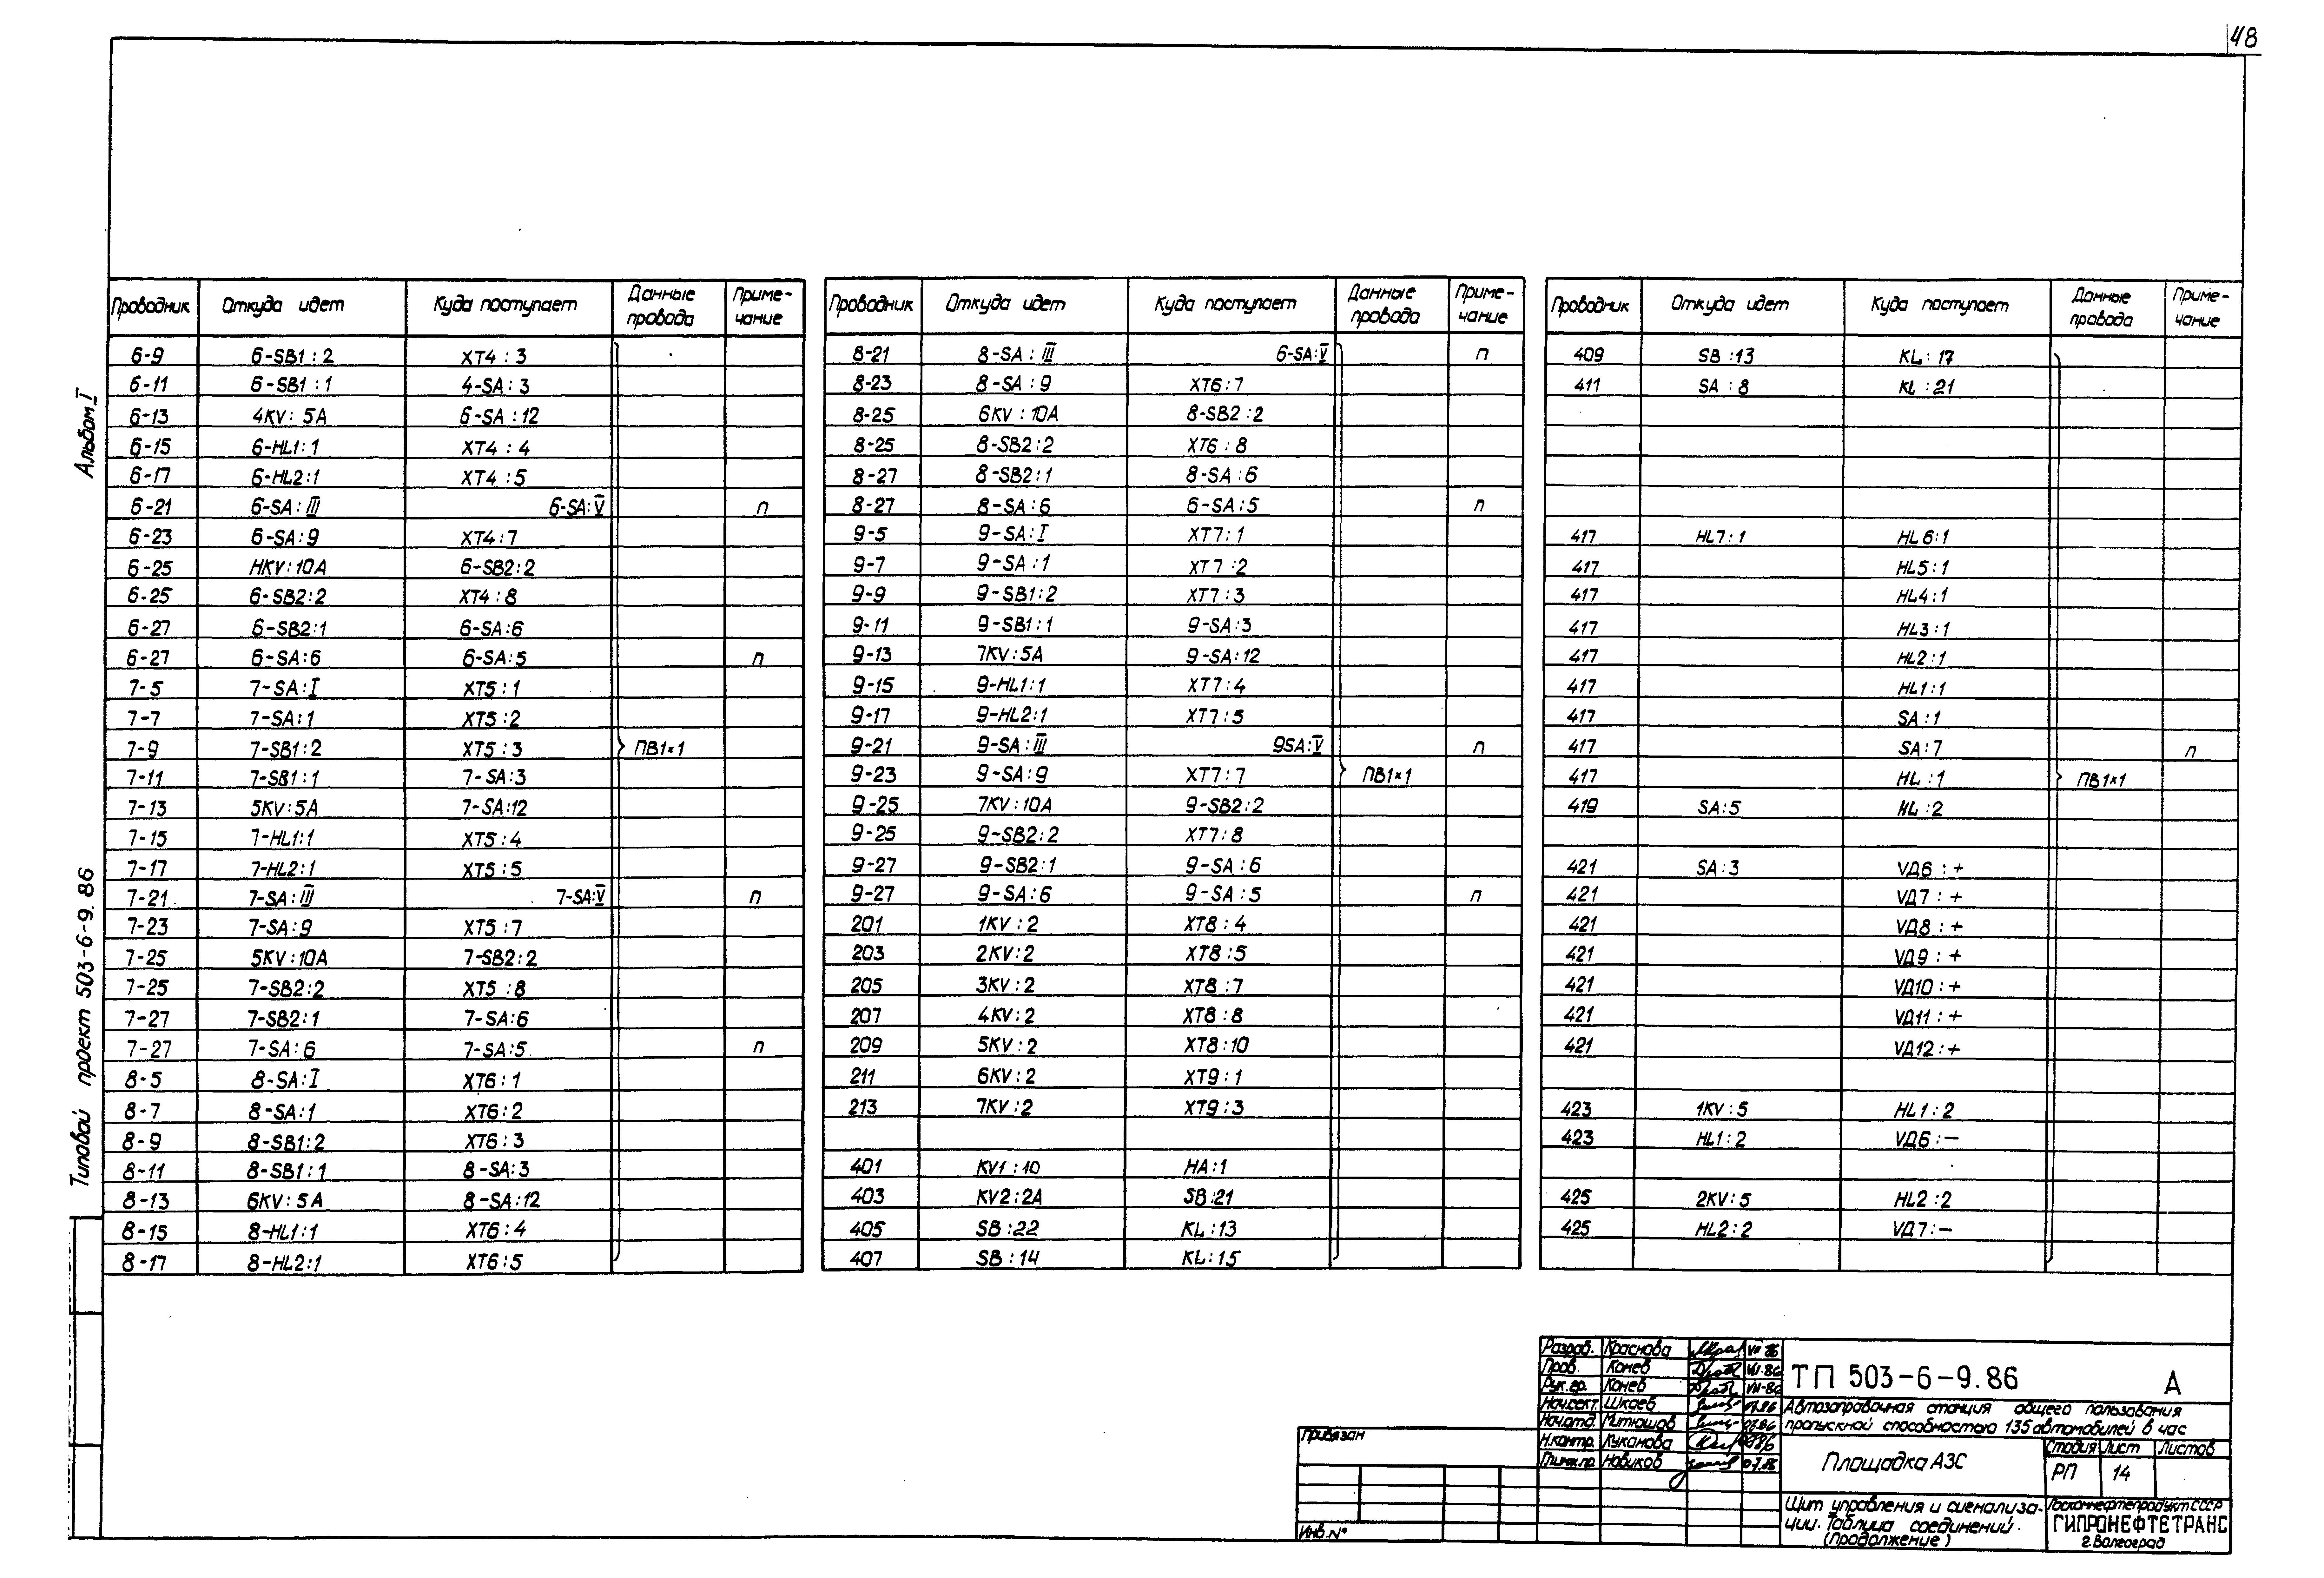 48
Альбом I
Типовой проект 503-6-9.86
Проводник Откуда идет Куда поступает Данные провода Примечание
6-9 6-SB1:2 XT4:3
6-11 6-SB1:1 4-SA:3
6-13 4KV:5A 6-SA:12
6-15 6-HL1:1 XT4:4
6-17 6-HL2:1 XT4:5
6-21 6-SA:III 6-SA:V п
6-23 6-SA:9 XT4:7
6-25 НKV:10A 6-SB2:2
6-25 6-SB2:2 XT4:8
6-27 6-SB2:1 6-SA:6
6-27 6-SA:6 6-SA:5 п
7-5 7-SA:I XT5:1
7-7 7-SA:1 XT5:2
7-9 7-SB1:2 XT5:3 ПВ1×1
7-11 7-SB1:1 7-SA:3
7-13 5KV:5A 7-SA:12
7-15 7-HL1:1 XT5:4
7-17 7-HL2:1 XT5:5
7-21 7-SA:III 7-SA:V п
7-23 7-SA:9 XT5:7
7-25 5KV:10A 7-SB2:2
7-25 7-SB2:2 XT5:8
7-27 7-SB2:1 7-SA:6
7-27 7-SA:6 7-SA:5 п
8-5 8-SA:I XT6:1
8-7 8-SA:1 XT6:2
8-9 8-SB1:2 XT6:3
8-11 8-SB1:1 8-SA:3
8-13 6KV:5A 8-SA:12
8-15 8-HL1:1 XT6:4
8-17 8-HL2:1 XT6:5
Проводник Откуда идет Куда поступает Данные провода Примечание
8-21 8-SA:III 6-SA:V п
8-23 8-SA:9 XT6:7
8-25 6KV:10A 8-SB2:2
8-25 8-SB2:2 XT6:8
8-27 8-SB2:1 8-SA:6
8-27 8-SA:6 6-SA:5 п
9-5 9-SA:I XT7:1
9-7 9-SA:1 XT7:2
9-9 9-SB1:2 XT7:3
9-11 9-SB1:1 9-SA:3
9-13 7KV:5A 9-SA:12
9-15 9-HL1:1 XT7:4
9-17 9-HL2:1 XT7:5
9-21 9-SA:III 9SA:V п
9-23 9-SA:9 XT7:7 ПВ1×1
9-25 7KV:10A 9-SB2:2
9-25 9-SB2:2 XT7:8
9-27 9-SB2:1 9-SA:6
9-27 9-SA:6 9-SA:5 п
201 1KV:2 XT8:4
203 2KV:2 XT8:5
205 3KV:2 XT8:7
207 4KV:2 XT8:8
209 5KV:2 XT8:10
211 6KV:2 XT9:1
213 7KV:2 XT9:3
401 KV1:10 HA:1
403 KV2:2A SB:21
405 SB:22 KL:13
407 SB:14 KL:15
Проводник Откуда идет Куда поступает Данные провода Примечание
409 SB:13 KL:17
411 SA:8 KL:21
417 HL7:1 HL6:1
417 HL5:1
417 HL4:1
417 HL3:1
417 HL2:1
417 HL1:1
417 SA:1
417 SA:7 п
417 HL:1 ПВ1×1
419 SA:5 HL:2
421 SA:3 VД6:+
421 VД7:+
421 VД8:+
421 VД9:+
421 VД10:+
421 VД11:+
421 VД12:+
423 1KV:5 HL1:2
423 HL1:2 VД6:—
425 2KV:5 HL2:2
425 HL2:2 VД7:—
Привязан
Инв.№
Разраб. Краснова VII 86
Пров. Конев VII-86
Рук.гр. Конев VII-86
Нач.сект. Шкаев 07.86
Нач.отд. Митюшов 07.86
Н.контр. Куканова
Гл.инж.пр. Новиков 07.86
ТП 503-6-9.86 А
Автозаправочная станция общего пользования
пропускной способностью 135 автомобилей в час
Площадка АЗС
Стадия Лист Листов
РП 14
Щит управления и сигнализа-
ции. Таблица соединений.
(Продолжение)
Госкомнефтепродукт СССР
ГИПРОНЕФТЕТРАНС
г. Волгоград